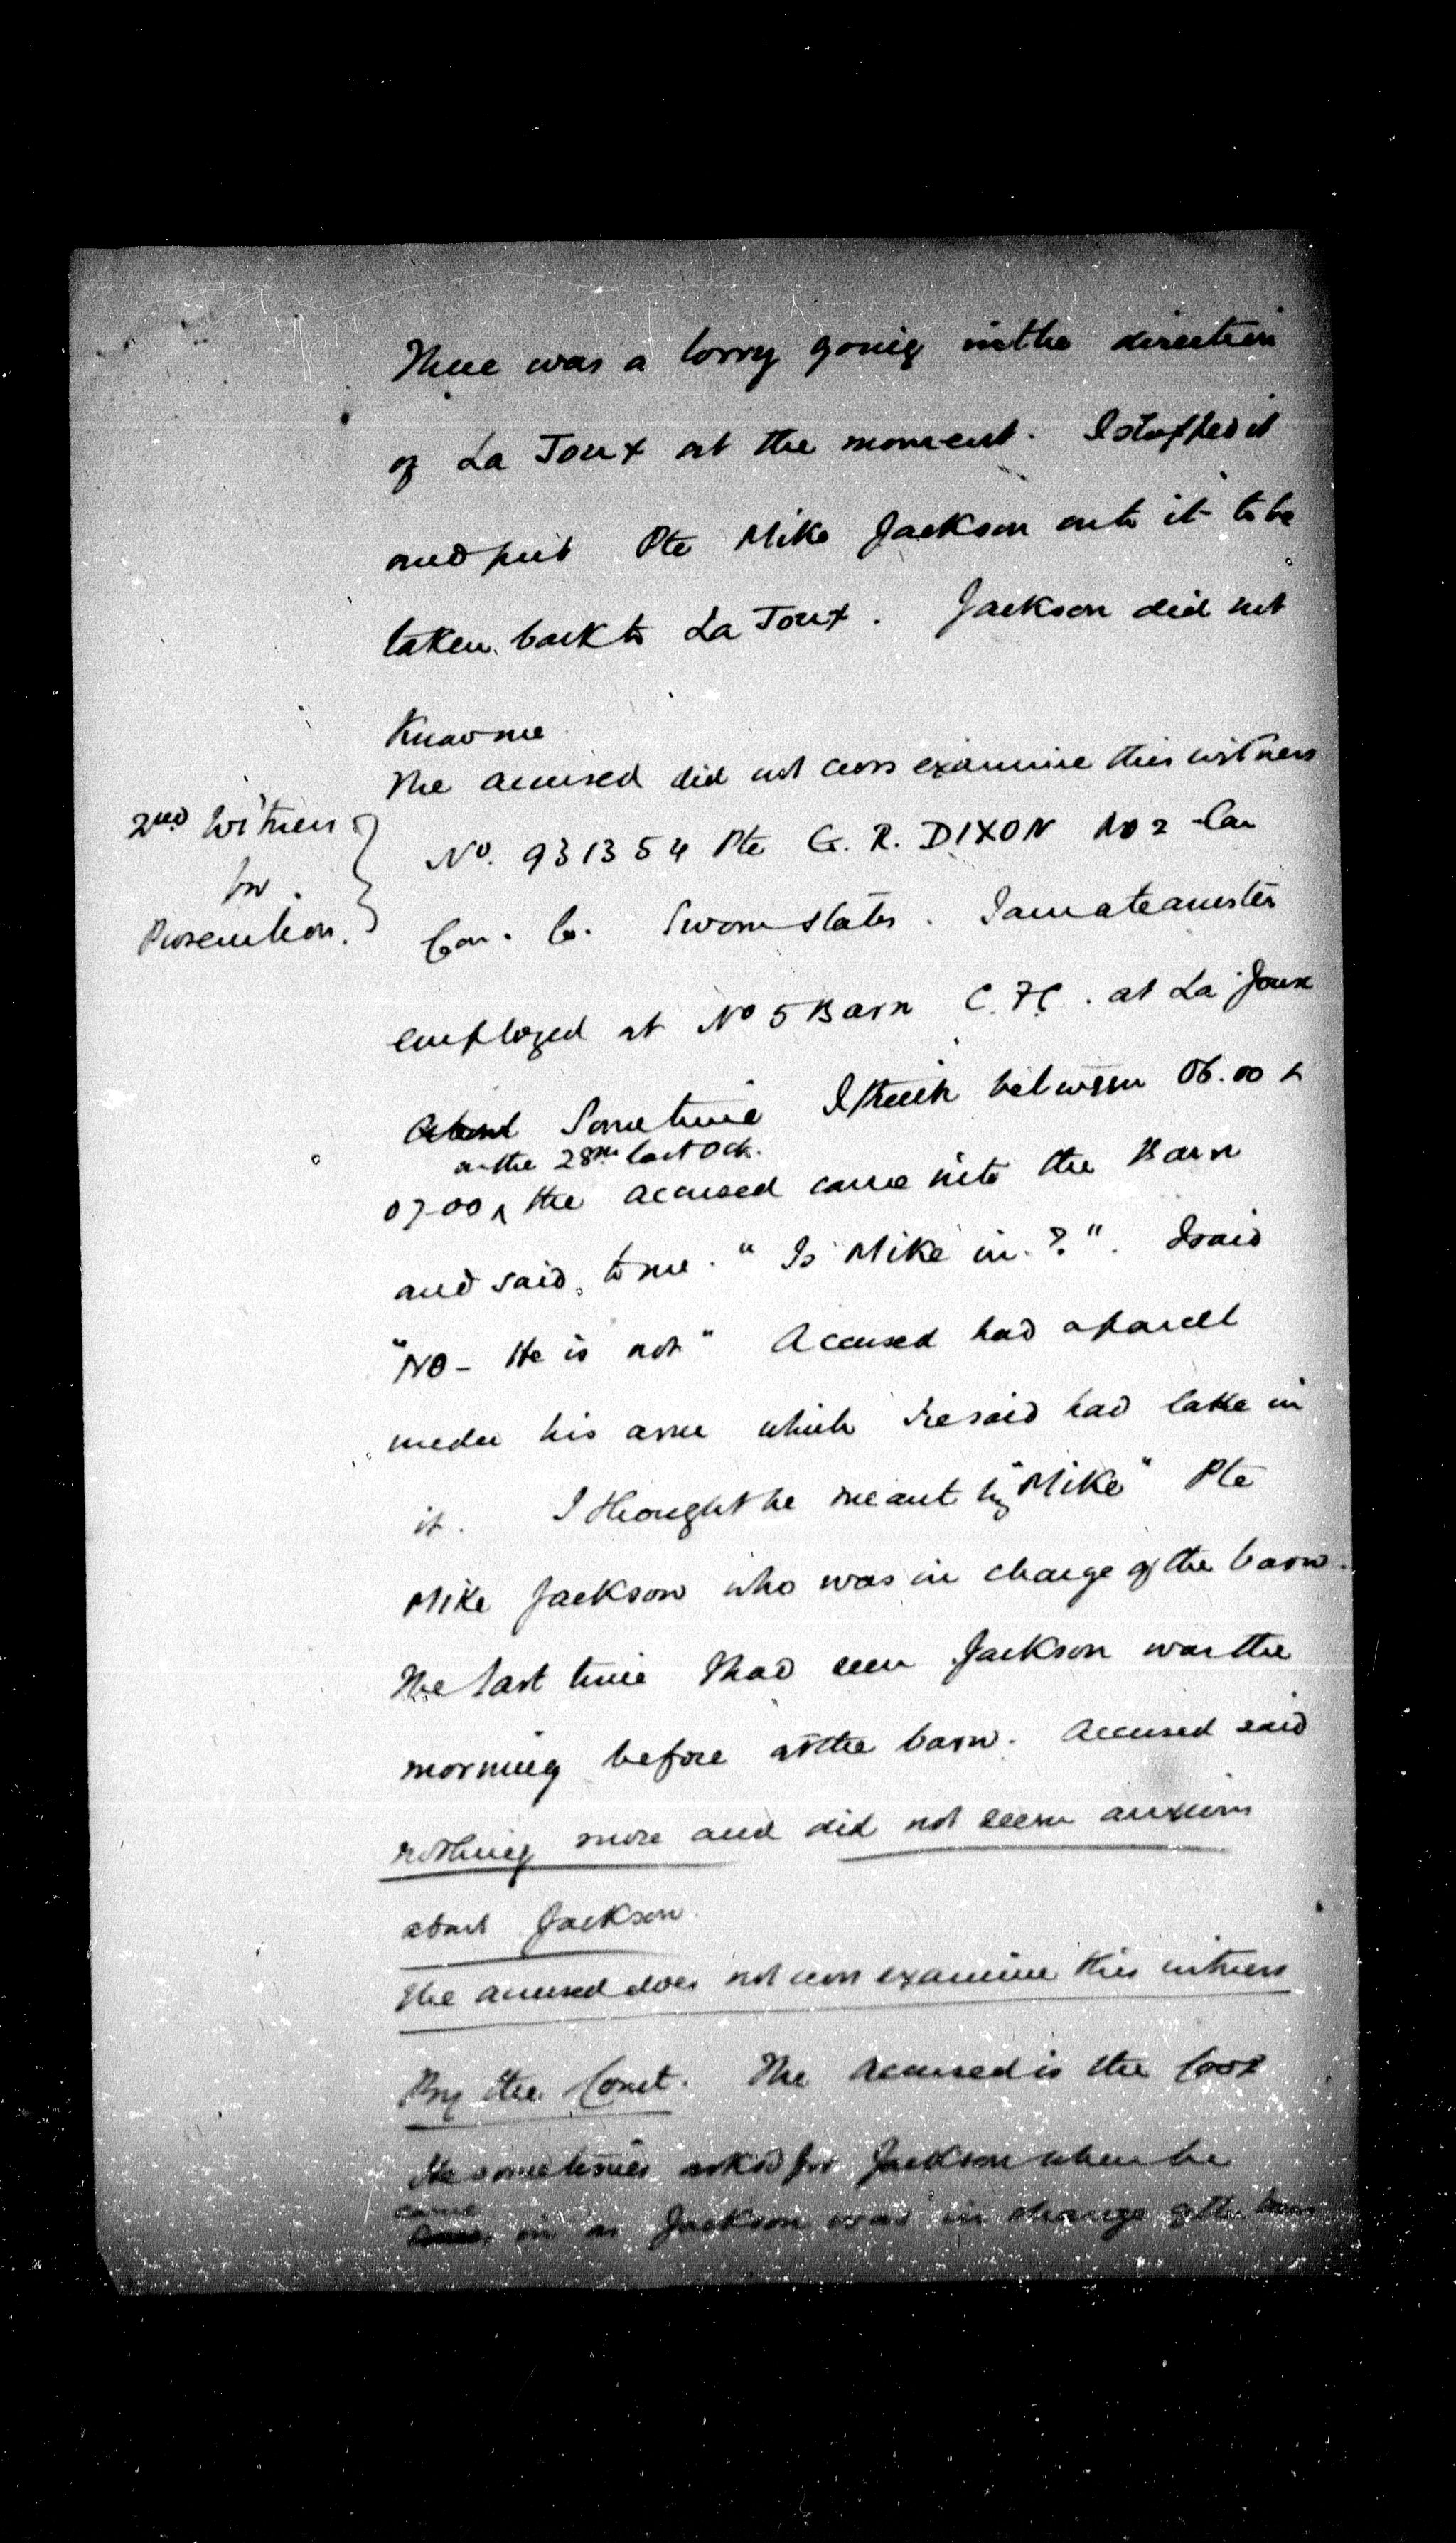 There was a lorry going in the direction
of La Joux at the moment. I stopped it
and put Pte Mike Jackson onto it to be
taken back to La Joux. Jackson did not
know me
The accused did not cross examine this witness
2nd Witness
for
Prosecution.
No. 931354 Pte G. R. DIXON No 2 Can
Con. Co. Sworn states. I am a teamster
employed at No 5 Barn C.F.C. at La Joux
About Sometime I think between 06.00 &
on the 28th last Oct.
07-00 the accused came into the Barn
and said, to me. "Is Mike in.?". I said
"NO - He is not" Accused had a parcel
under his arm which he said had cake in
it. I thought he meant by "Mike" Pte
Mike Jackson who was in charge of the barn.
The last time I had seen Jackson was the
morning before at the barn. Accused said
nothing more and did not seem anxious
about Jackson.
The accused does not cross examine this witness
By the Court. The Accused is the cook
He sometimes asked for Jackson when he
came
in as Jackson was in charge of the barn